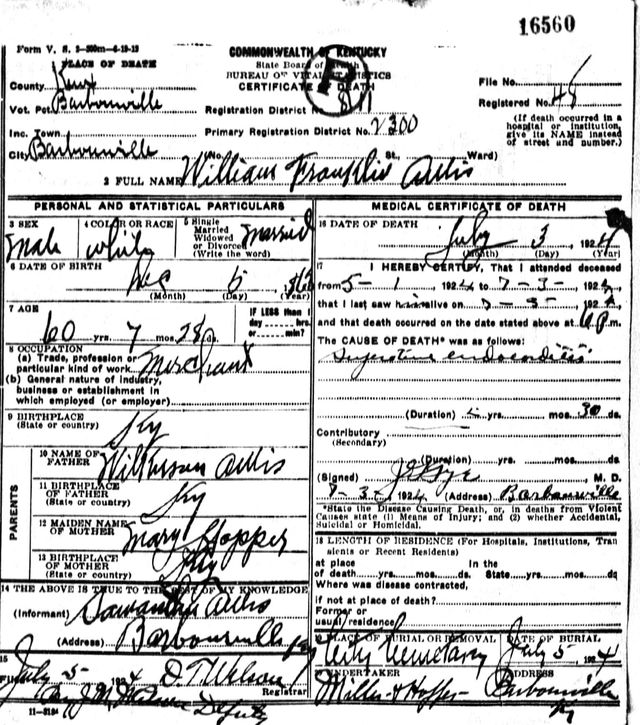 16560
Form V. S. 1-300m-4-19-19
PLACE OF DEATH
COMMONWEALTH OF KENTUCKY
State Board of Health
BUREAU OF VITAL STATISTICS
CERTIFICATE OF DEATH
County Knox
File No.
Vot. Pct. Barbourville
Registration District No.
Registered No. 48
(If death occurred in a hospital or institution, give its NAME instead of street and number.)
Inc. Town
Primary Registration District No. 2300
City Barbourville (No. St., Ward)
2 FULL NAME William Franklin
PERSONAL AND STATISTICAL PARTICULARS
3 SEX Male
4 COLOR OR RACE White
5 Single Married Widowed or Divorced (Write the word) Married
6 DATE OF BIRTH Dec 5
(Month) (Day) (Year)
7 AGE 60 yrs. 7 mos. 28 ds.
IF LESS than 1 day hrs. or min?
8 OCCUPATION
(a) Trade, profession or particular kind of work Merchant
(b) General nature of industry, business or establishment in which employed (or employer)
9 BIRTHPLACE
(State or country) Ky
PARENTS
10 NAME OF FATHER
11 BIRTHPLACE OF FATHER
(State or country) Ky
12 MAIDEN NAME OF MOTHER Mary Hopper
13 BIRTHPLACE OF MOTHER
(State or country) Ky
14 THE ABOVE IS TRUE TO THE BEST OF MY KNOWLEDGE
(Informant) Samantha
(Address) Barbourville Ky
15
Filed July 5 1924
Registrar
Deputy
11-3184
MEDICAL CERTIFICATE OF DEATH
16 DATE OF DEATH July 3, 1924
(Month) (Day) (Year)
17 I HEREBY CERTIFY, That I attended deceased
from 5-1 1924 to 7-3- 1924
that I last saw him alive on 7-3- 192
and that death occurred on the date stated above at m.
The CAUSE OF DEATH* was as follows:
endocarditis
(Duration) yrs. mos. 30 ds.
Contributory
(Secondary)
(Duration) yrs. mos. ds.
(Signed) M. D.
7-3- 1924 (Address) Barbourville
*State the Disease Causing Death, or, in deaths from Violent Causes state (1) Means of Injury; and (2) whether Accidental, Suicidal or Homicidal.
18 LENGTH OF RESIDENCE (For Hospitals, Institutions, Tran
sients or Recent Residents)
at place In the
of death yrs. mos. ds. State yrs. mos. ds
Where was disease contracted,
if not at place of death?
Former or
usual residence
19 PLACE OF BURIAL OR REMOVAL City Cemetary
DATE OF BURIAL July 5, 1924
20 UNDERTAKER
ADDRESS Barbourville Ky